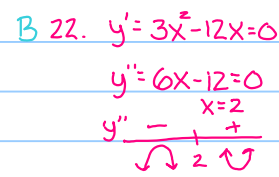 B 22. y' = 3x²-12x=0
y''=6x-12=0
x=2
y'' - +
2